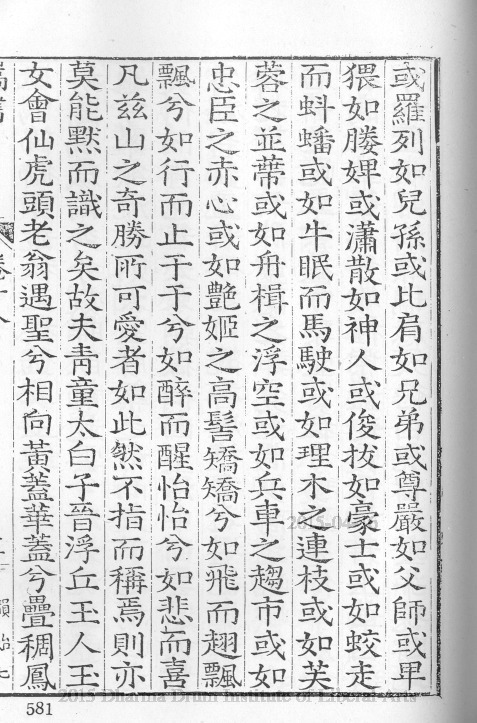 或羅列如兒孫或比肩如兄弟或尊嚴如父師或卑
猥如媵婢或瀟散如神人或俊拔如豪士或如蛟走
而蚪蟠或如牛眠而馬駛或如理木之連枝或如芙
蓉之並蔕或如舟楫之浮空或如兵車之趨市或如
忠臣之赤心或如艷姬之高髻矯矯兮如飛而翅飄
飄兮如行而止于于兮如醉而醒怡怡兮如悲而喜
凡茲山之奇勝所可愛者如此然不指而稱焉則亦
莫能默而識之矣故夫靑童太白子晉浮丘玉人玉
女會仙虎頭老翁遇聖兮相向黃蓋華蓋兮疊稠鳳
581
2015 Dharma Drum Institute of Liberal Arts